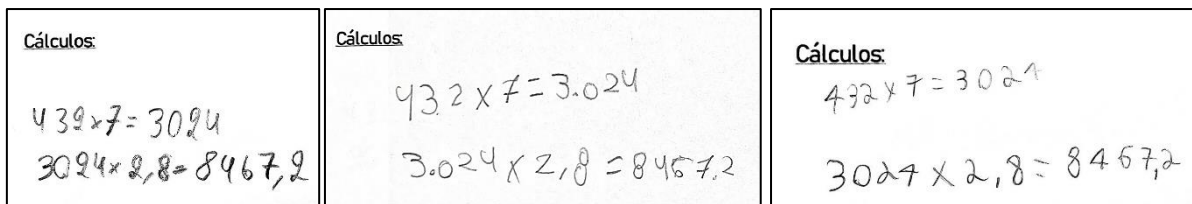 Cálculos:
432x7= 3024
3024x2,8=8467,2
Cálculos:
432x7=3.024
3.024x2,8=8467,2
Cálculos:
432x7=3024
3024x2,8=8467,2